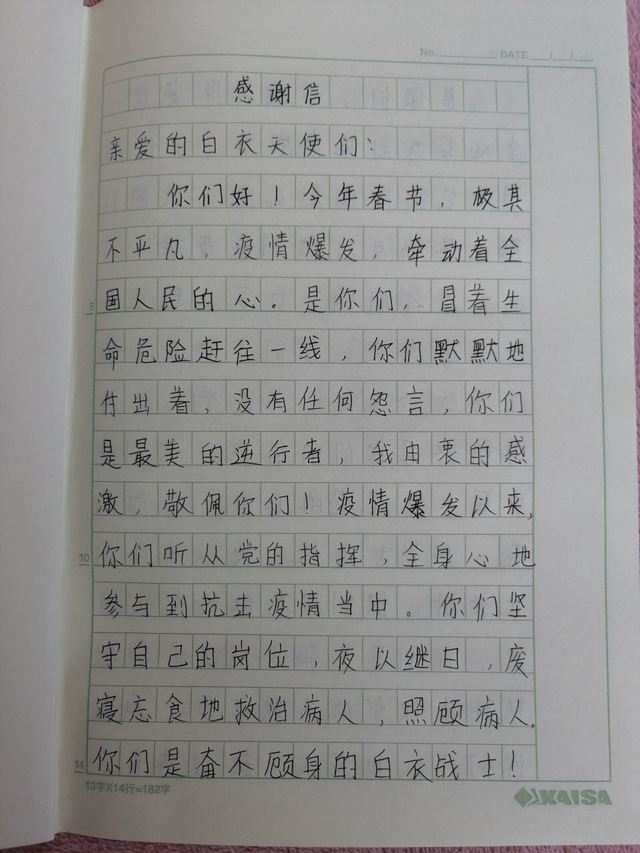 No. DATE / /
感谢信
亲爱的白衣天使们：
你们好！今年春节，极其
不平凡，疫情爆发，牵动着全
5
国人民的心。是你们，冒着生
命危险赶往一线，你们默默地
付出着，没有任何怨言，你们
是最美的逆行者，我由衷的感
激，敬佩你们！疫情爆发以来，
10
你们听从党的指挥，全身心地
参与到抗击疫情当中。你们坚
守自己的岗位，夜以继日，废
寝忘食地救治病人，照顾病人。
14
你们是奋不顾身的白衣战士！
13字X14行=182字
KAISA